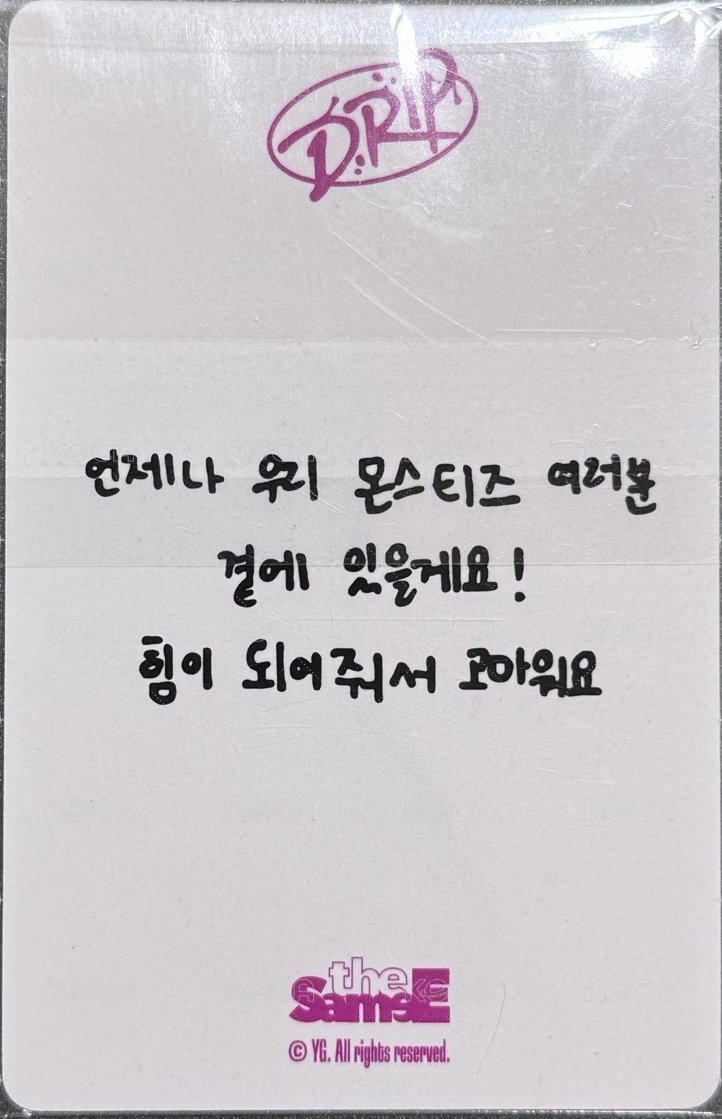 DRIP
언제나 우리 몬스티즈 여러분
곁에 있을게요!
힘이 되어줘서 고마워요
the
SameE
© YG. All rights reserved.